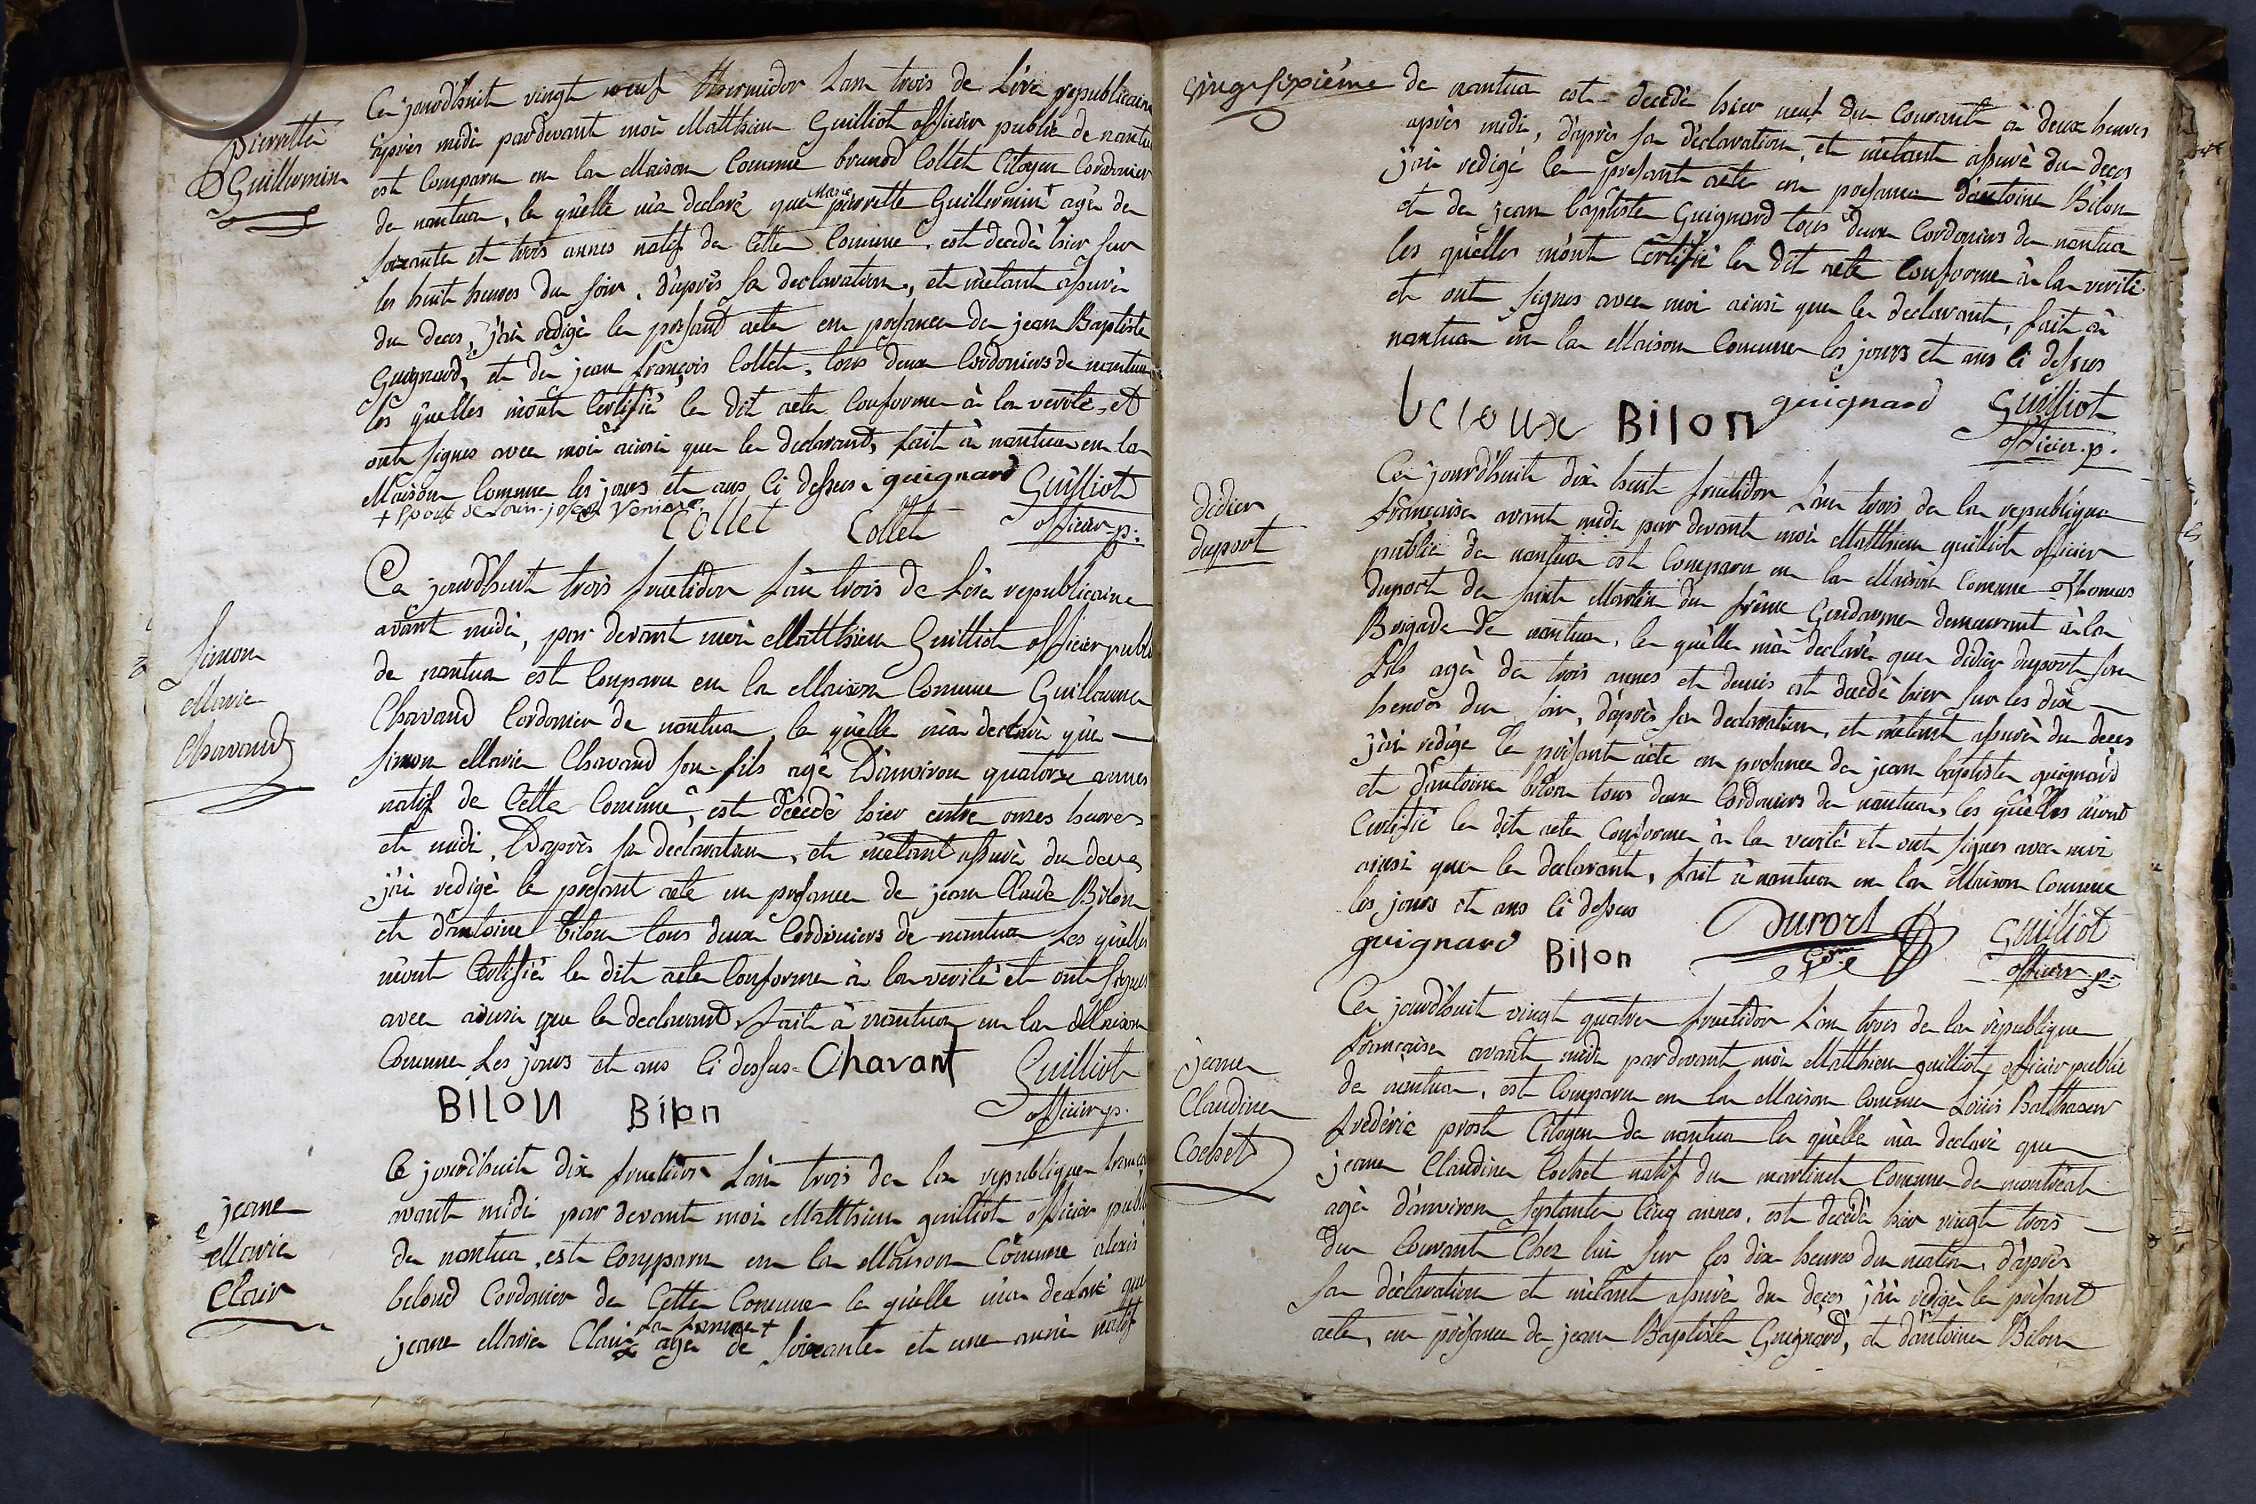 Pierrette
Guillermin
Ce jourd'huit vingt neuf thermidor l'an trois de l'ère republicaine
après midi pardevant moi Matthieu Guilliot officier public de nantua
est comparu en la Maison Comune brunod Collet Citoyen Cordonier
de nantua, le qu'elle m'a declaré que Marie pierrette Guillermin + agée de
soixante et trois annes natif de Cette Comune, est decedé hier sur
les huit heures du soir, d'après sa declaration, et m'etant assuré
du deces, j'ai redigé le present acte en presence de jean Baptiste
Guignard, et de jean françois Collet, tous deux Cordoniers de nantua
les qu'elles m'ont Certifié le dit acte Conforme à la verité, et
ont signes avec moi ainsi que le declarant, fait à nantua en la
Maison Comune les jours et ans Ci dessus guignard Guilliot
+ Epouse de Louis-joseph
Collet Collet officier p.
Simon
Marie
Chavand
Ce jourd'huit trois fructidor l'an trois de l'ère republicaine
avant midi, par devant moi Matthieu Guilliot officier publi
de nantua est Comparu en la Maison Comune Guillaume
Chavand Cordonier de nantua, le qu'elle m'a declaré que
simon Marie Chavand son fils agé D'anviron quatorze annes
natif de Cette Comune, est décédé hier entre onzes heures
et midi, D'après sa declaration, et m'etant assuré du deces
j'ai redigé le present acte en presence de jean Claude Bilon
et d'antoine bilon tous deux Cordoniers de nantua Les qu'elles
m'ont Certifié le dit acte Conforme à la verité et ont signes
avec ainsi que le declarant, fait à nantua en la Maison
Comune Les jours et ans Ci dessus Chavant Guilliot
BILON Bilon officier p.
jeane
Marie
Clair
Ce jourd'huit dix fructidor l'an trois de la republique
avant midi par devant moi Matthieu guilliot officier publi
de nantua, est Comparu en la Maison Comune alexis
beloud Cordonier de Cette Comune le qu'elle m'a declaré que
jeane Marie Clair sa femme + agée de soixante et une année natif
vingt sixième
de nantua est decedé hier neuf du Courant à deux heures
après midi, d'après sa déclaration, et m'etant assuré du deces
j'ai redigé le present acte en presence d'antoine Bilon
et de jean baptiste Guignard tous deux Cordoniers de nantua
les qu'elles m'ont Certifié le dit acte Conforme à la verité
et ont signes avec moi ainsi que le declarant, fait à
nantua en la Maison Comune les jours et ans Ci dessus
Bilon guignard Guilliot
officier p.
didier
duport
Ce jourd'huit dix huit fructidor l'an trois de la republique
française avant midi par devant moi Matthieu guilliot officier
public de nantua est Comparu en la Maison Comune
duport de saint Martin du frêne Gendarme demeurant à la
Brigade de nantua, le qu'elle m'a declaré que didier duport son
fils agé de trois annes et demis est decedé hier sur les dix
heures du soir, d'après sa declaration, et m'etant assuré du deces
j'ai redigé le présent acte en presence de jean baptiste guignard
et d'antoine bilon tous deux Cordoniers de nantua, les qu'elles m'ont
Certifié le dit acte Conforme à la verité et ont signes avec moi
ainsi que le declarant, fait à nantua en la Maison Comune
les jours et ans Ci dessus
guignard Bilon Guilliot
officier p.
jeane
Claudine
Cochet
Ce jourd'huit vingt quatre fructidor l'an trois de la république
française avant midi par devant moi Matthieu guilliot, officier public
de nantua, est Comparu en la Maison Comune Loüis Balthazar
frédéric prost Citoyen de nantua le qu'elle m'a declaré que
jeane Claudine Cochet natif du martinet Comune de montréat
agée d'anviron septante Cinq annes, est decedé hier vingt trois
du Courant Chez lui sur les dix heures du matin, d'après
sa déclaration et m'etant assuré du deces j'ai redigé le présent
acte, en présence de jean Baptiste Guignard, et d'antoine Bilon